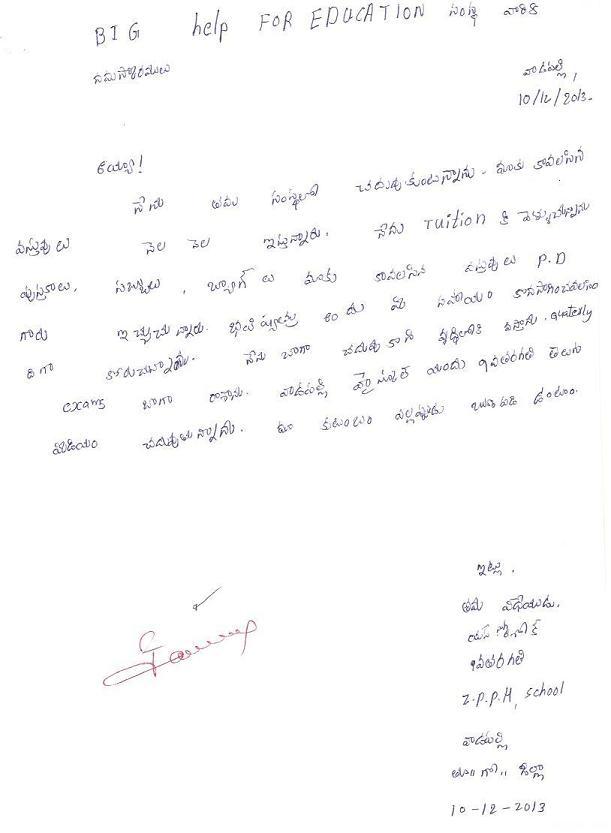 BIG help FOR EDUCATION సంస్థ వారికి
నమస్కారములు
వాడపల్లి,
10/12/2013.
అయ్యా!
నేను తమ సంస్థలో చదువుకుంటున్నాను. మాకు కావలసిన
వస్తువులు నెల నెల ఇస్తున్నారు. నేను Tuition కి వెళ్ళుచున్నాను
పుస్తకాలు, సబ్బులు, బ్యాగ్ లు మాకు కావలసిన వస్తువులు P.D
గారు ఇచ్చుచున్నారు. భవిష్యత్తు అందు మీ సహాయం కొనసాగించవలసిం
దిగా కోరుచున్నాను. నేను బాగా చదువుకొని వృద్ధిలోకి వస్తాను. quaterly
exams బాగా రాసాను. వాడపల్లి హైస్కూల్ యందు 9వతరగతి తెలుగు
మీడియం చదువుతున్నాను. మా కుటుంబం ఎల్లప్పుడు ఋణపడి ఉంటుం.
ఇట్లు,
తమ విధేయుడు.
9వతరగతి
Z.P.P.H, School
వాడపల్లి
తూ గో,, జిల్లా
10-12-2013